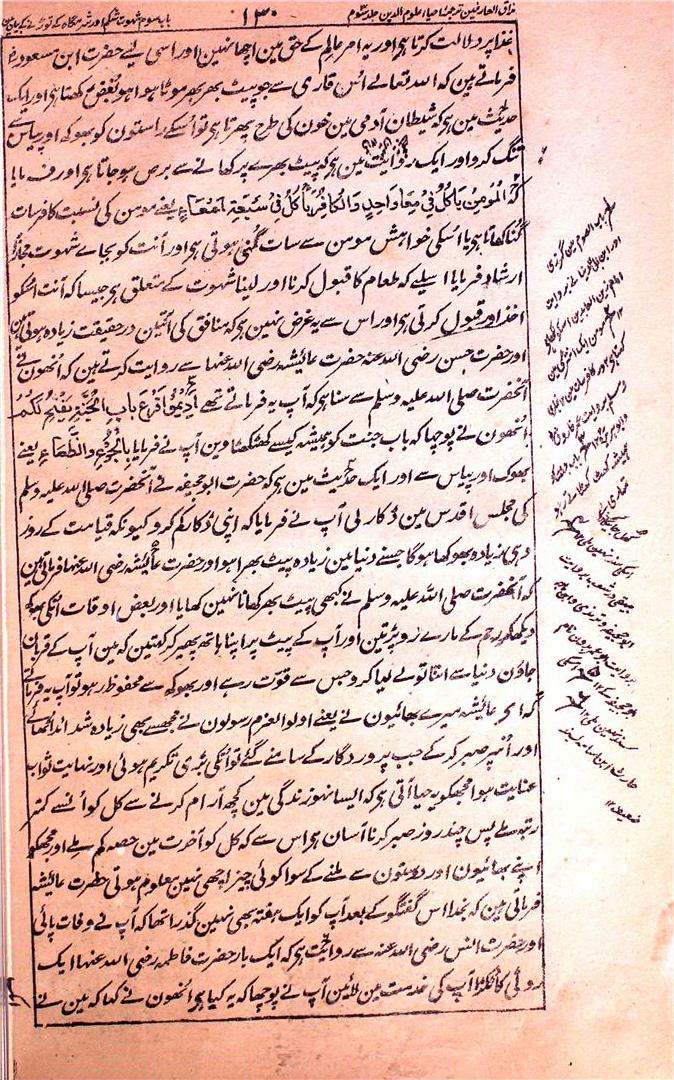 مذاق العارفین ترجمۂ احیاء علوم الدین جلد سوم
۱۳۰
باب سوم شہوت شکم اور شرمگاہ کے توڑنے کے بیان مین
غذا پر دلالت کرتا ہی اور یہ امر عالم کے حق مین اچھا نہین اور اسی لیے حضرت ابن مسعودؓ
فرماتے ہین کہ اللہ تعالے اُس قاری سے جو پیٹ بھر بھر موٹا ہوا ہو بغض رکھتا ہی اور ایک
حدیث مین ہی کہ شیطان آدمی مین خون کی طرح پھرتا ہی تو اُسکے راستون کو بھوکھ اور پیاس سے
تنگ کرو اور ایک روایت مین ہی کہ پیٹ بھرے پر کھانے سے برص ہو جاتا ہی اور فرمایا
کہ المُؤمِنُ یَاکُلُ فِیْ مِعاً وَاحِدٍ وَالکَافِرُ یَأکُلُ فِیْ سَبْعَۃِ اَمْعَاءٍ یعنے مومن کی نسبت کافر سات
گنا کھاتا ہی یا اسکی خواہش مومن سے سات گنی ہوتی ہی اور آنت کو بجاے شہوت مجازاً
ارشاد فرمایا اسلیے کہ طعام کا قبول کرنا اور لینا شہوت کے متعلق ہی جیسا کہ آنت اسکو
اخذ اور قبول کرتی ہی اور اس سے یہ غرض نہین ہی کہ منافق کی آنتین درحقیقت زیادہ ہوتی ہین
اور حضرت حسن رضی اللہ عنہ حضرت عایشہ رضی اللہ عنہا سے روایت کرتے ہین کہ اُنھون نے
آنحضرت صلی اللہ علیہ وسلم سے سنا ہی کہ آپ یہ فرماتے تھے اَدِیْمُوْا قَرْعَ بَابِ الْجَنَّۃِ یُفْتَحْ لَکُمْ
اُنھون نے پوچھا کہ باب جنت کو ہمیشہ کیسے کھٹکھٹا وین آپ نے فرمایا بِالْجُوْعِ وَالظَّمَاءِ یعنے
بھوک اور پیاس سے اور ایک حدیث مین ہی کہ حضرت ابو جحیفہ نے آنحضرت صلی اللہ علیہ وسلم
کی مجلس اقدس مین ڈکار لی آپ نے فرمایا کہ اپنی ڈکار کم کرو کیونکہ قیامت کے روز
وہی زیادہ بھوکھا ہوگا جسنے دنیا مین زیادہ پیٹ بھرا ہو اور حضرت عایشہ رضی اللہ عنہا فرماتی ہین
کہ آنحضرت صلی اللہ علیہ وسلم نے کبھی پیٹ بھر کھانا نہین کھایا اور بعض اوقات انکی بھوکھ
دیکھکر رحم کے مارے رو پڑتین اور آپ کے پیٹ پر اپنا ہاتھ پھیر کر کہتین کہ مین آپ کے قربان
جاؤن دنیا سے اتنا تو لے لیا کرو جس سے قوت رہے اور بھوکھ سے محفوظ رہو تو آپ یہ فرماتے
کہ ای عایشہ میرے بھائیون نے یعنے اولوالعزم رسولون نے مجھسے بھی زیادہ شدائد اٹھائے
اور اُنپر صبر کر کے جب پروردگار کے سامنے گئے تو اُنکی بڑی تکریم ہوئی اور نہایت ثواب
عنایت ہوا مجھکو یہ حیا آتی ہی کہ ایسا نہو زندگی مین کچھ آرام کرنے سے کل کو اُنسے کمتر
رتبہ ملے پس چند روز صبر کرنا آسان ہی اس سے کہ کل کو آخرت مین حصہ کم ملے اور مجھکو
اپنے بھائیون اور دوستون سے ملنے کے سوا کوئی چیز اچھی نہین معلوم ہوتی حضرت عایشہ
فرماتی ہین کہ بخدا اس گفتگو کے بعد آپ کو ایک ہفتہ بھی نہین گذرا تھا کہ آپ نے وفات پائی
اور حضرت انس رضی اللہ عنہ سے روایت ہی کہ ایک بار حضرت فاطمہ رضی اللہ عنہا ایک
روٹی کا ٹکڑا آپ کی خدمت مین لائین آپ نے پوچھا کہ یہ کیا ہی اُنھون نے کہا کہ مین نے